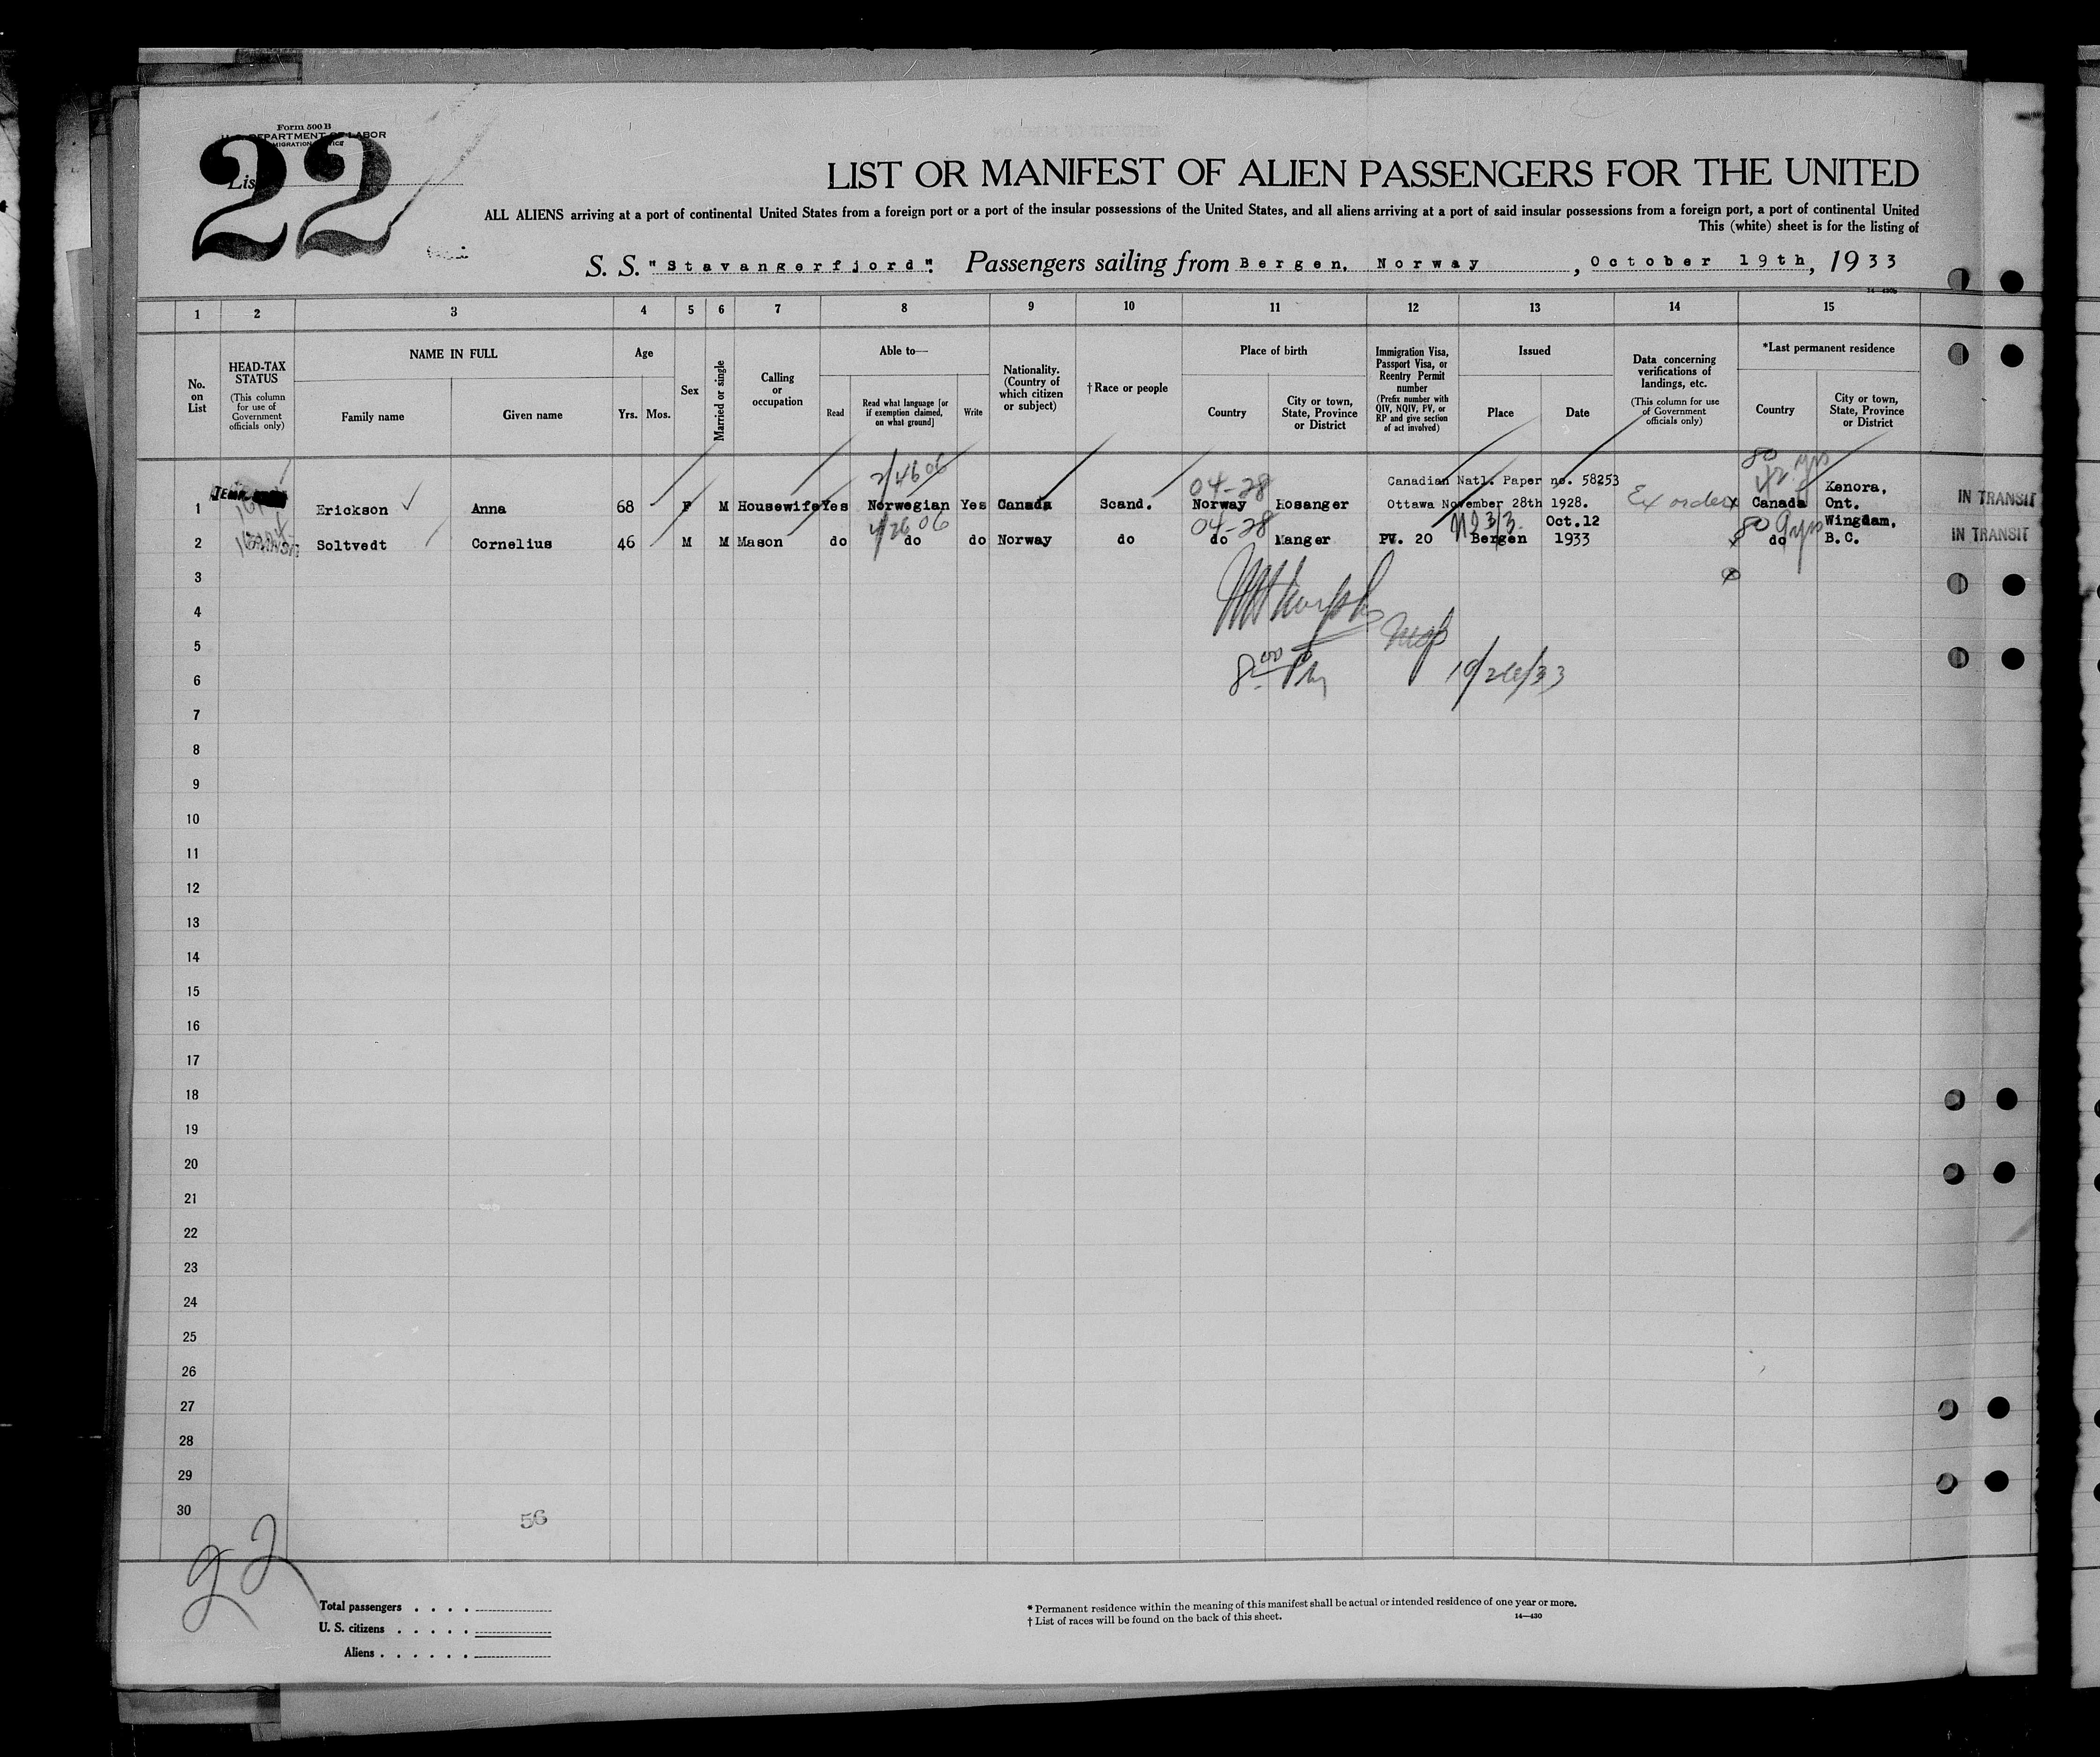 Form 500 B
U. S. DEPARTMENT OF LABOR
IMMIGRATION SERVICE
22
List
LIST OR MANIFEST OF ALIEN PASSENGERS FOR THE UNITED
ALL ALIENS arriving at a port of continental United States from a foreign port or a port of the insular possessions of the United States, and all aliens arriving at a port of said insular possessions from a foreign port, a port of continental United
This (white) sheet is for the listing of
S. S. "Stavangerfjord". Passengers sailing from Bergen, Norway, October 19th, 1933
1 2 3 4 5 6 7 8 9 10 11 12 13 14 15
No. on List
HEAD-TAX STATUS (This column for use of Government officials only)
NAME IN FULL
Family name
Given name
Age
Yrs.
Mos.
Sex
Married or single
Calling or occupation
Able to—
Read
Read what language [or if exemption claimed, on what ground]
Write
Nationality. (Country of which citizen or subject)
†Race or people
Place of birth
Country
City or town, State, Province or District
Immigration Visa, Passport Visa, or Reentry Permit number (Prefix number with QIV, NQIV, PV, or RP and give section of act involved)
Issued
Place
Date
Data concerning verifications of landings, etc. (This column for use of Government officials only)
*Last permanent residence
Country
City or town, State, Province or District
2/46 06
04-28
Canadian Natl. Paper no. 58253
80
yrs
Kenora,
1 Erickson Anna 68 F M Housewife Yes Norwegian Yes Canada Scand. Norway Hosanger Ottawa November 28th 1928. Ex order x Canada Ont. IN TRANSIT
4/26 06
04-28
Oct.12
80 9 yrs
Wingdam,
2 Soltvedt Cornelius 46 M M Mason do do do Norway do do Manger PV. 20 Bergen 1933 do B.C. IN TRANSIT
3
4
5
8:00 PM
10/26/33
6
7
8
9
10
11
12
13
14
15
16
17
18
19
20
21
22
23
24
25
26
27
28
29
30
56
22
Total passengers . . . .
U. S. citizens . . . . .
Aliens . . . . . .
* Permanent residence within the meaning of this manifest shall be actual or intended residence of one year or more.
† List of races will be found on the back of this sheet.
14—430